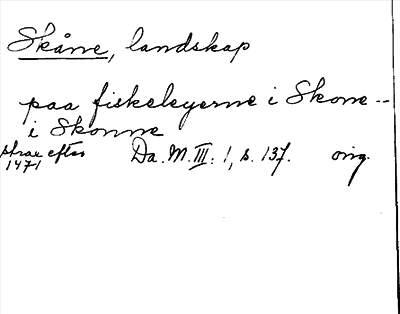 Skåne, landskap
paa fiskeleyerne i Skone --
i Skonne
strax efter Da. M. III: 1, s. 137. orig.
1471